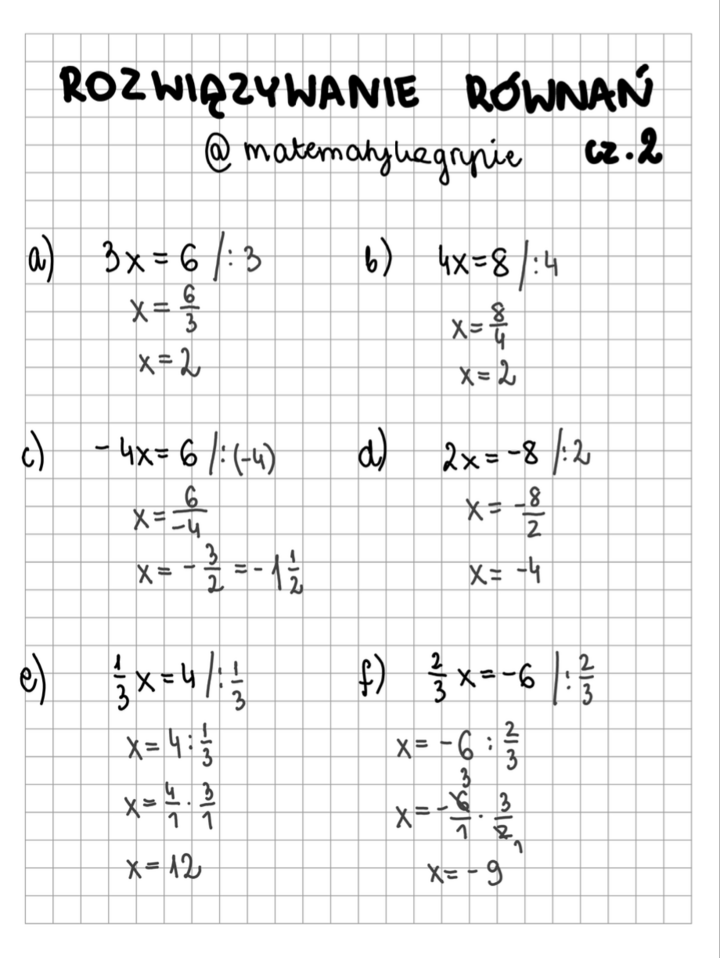 ROZWIĄZYWANIE RÓWNAŃ
@matematykagrypie cz.2
a) 3x = 6 /: 3
x = 6/3
x = 2
b) 4x = 8 /: 4
x = 8/4
x = 2
c) -4x = 6 /: (-4)
x = 6/-4
x = - 3/2 = -1 1/2
d) 2x = -8 /: 2
x = -8/2
x = -4
e) 1/3 x = 4 /: 1/3
x = 4 : 1/3
x = 4/1 · 3/1
x = 12
f) 2/3 x = -6 /: 2/3
x = -6 : 2/3
3
x = -6/1 · 3/2
1
x = -9